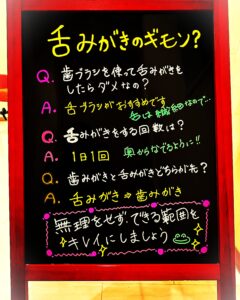 舌みがきのギモン?
Q. 歯ブラシを使って舌みがきを
したらダメなの?
A. 舌ブラシがおすすめです
舌は繊細なので…
Q. 舌みがきをする回数は?
A. 1日1回 奥からなでるように!!
Q. 歯みがきと舌みがきどちらが先?
A. 舌みがき⇒歯みがき
無理をせず、できる範囲を
キレイにしましょう